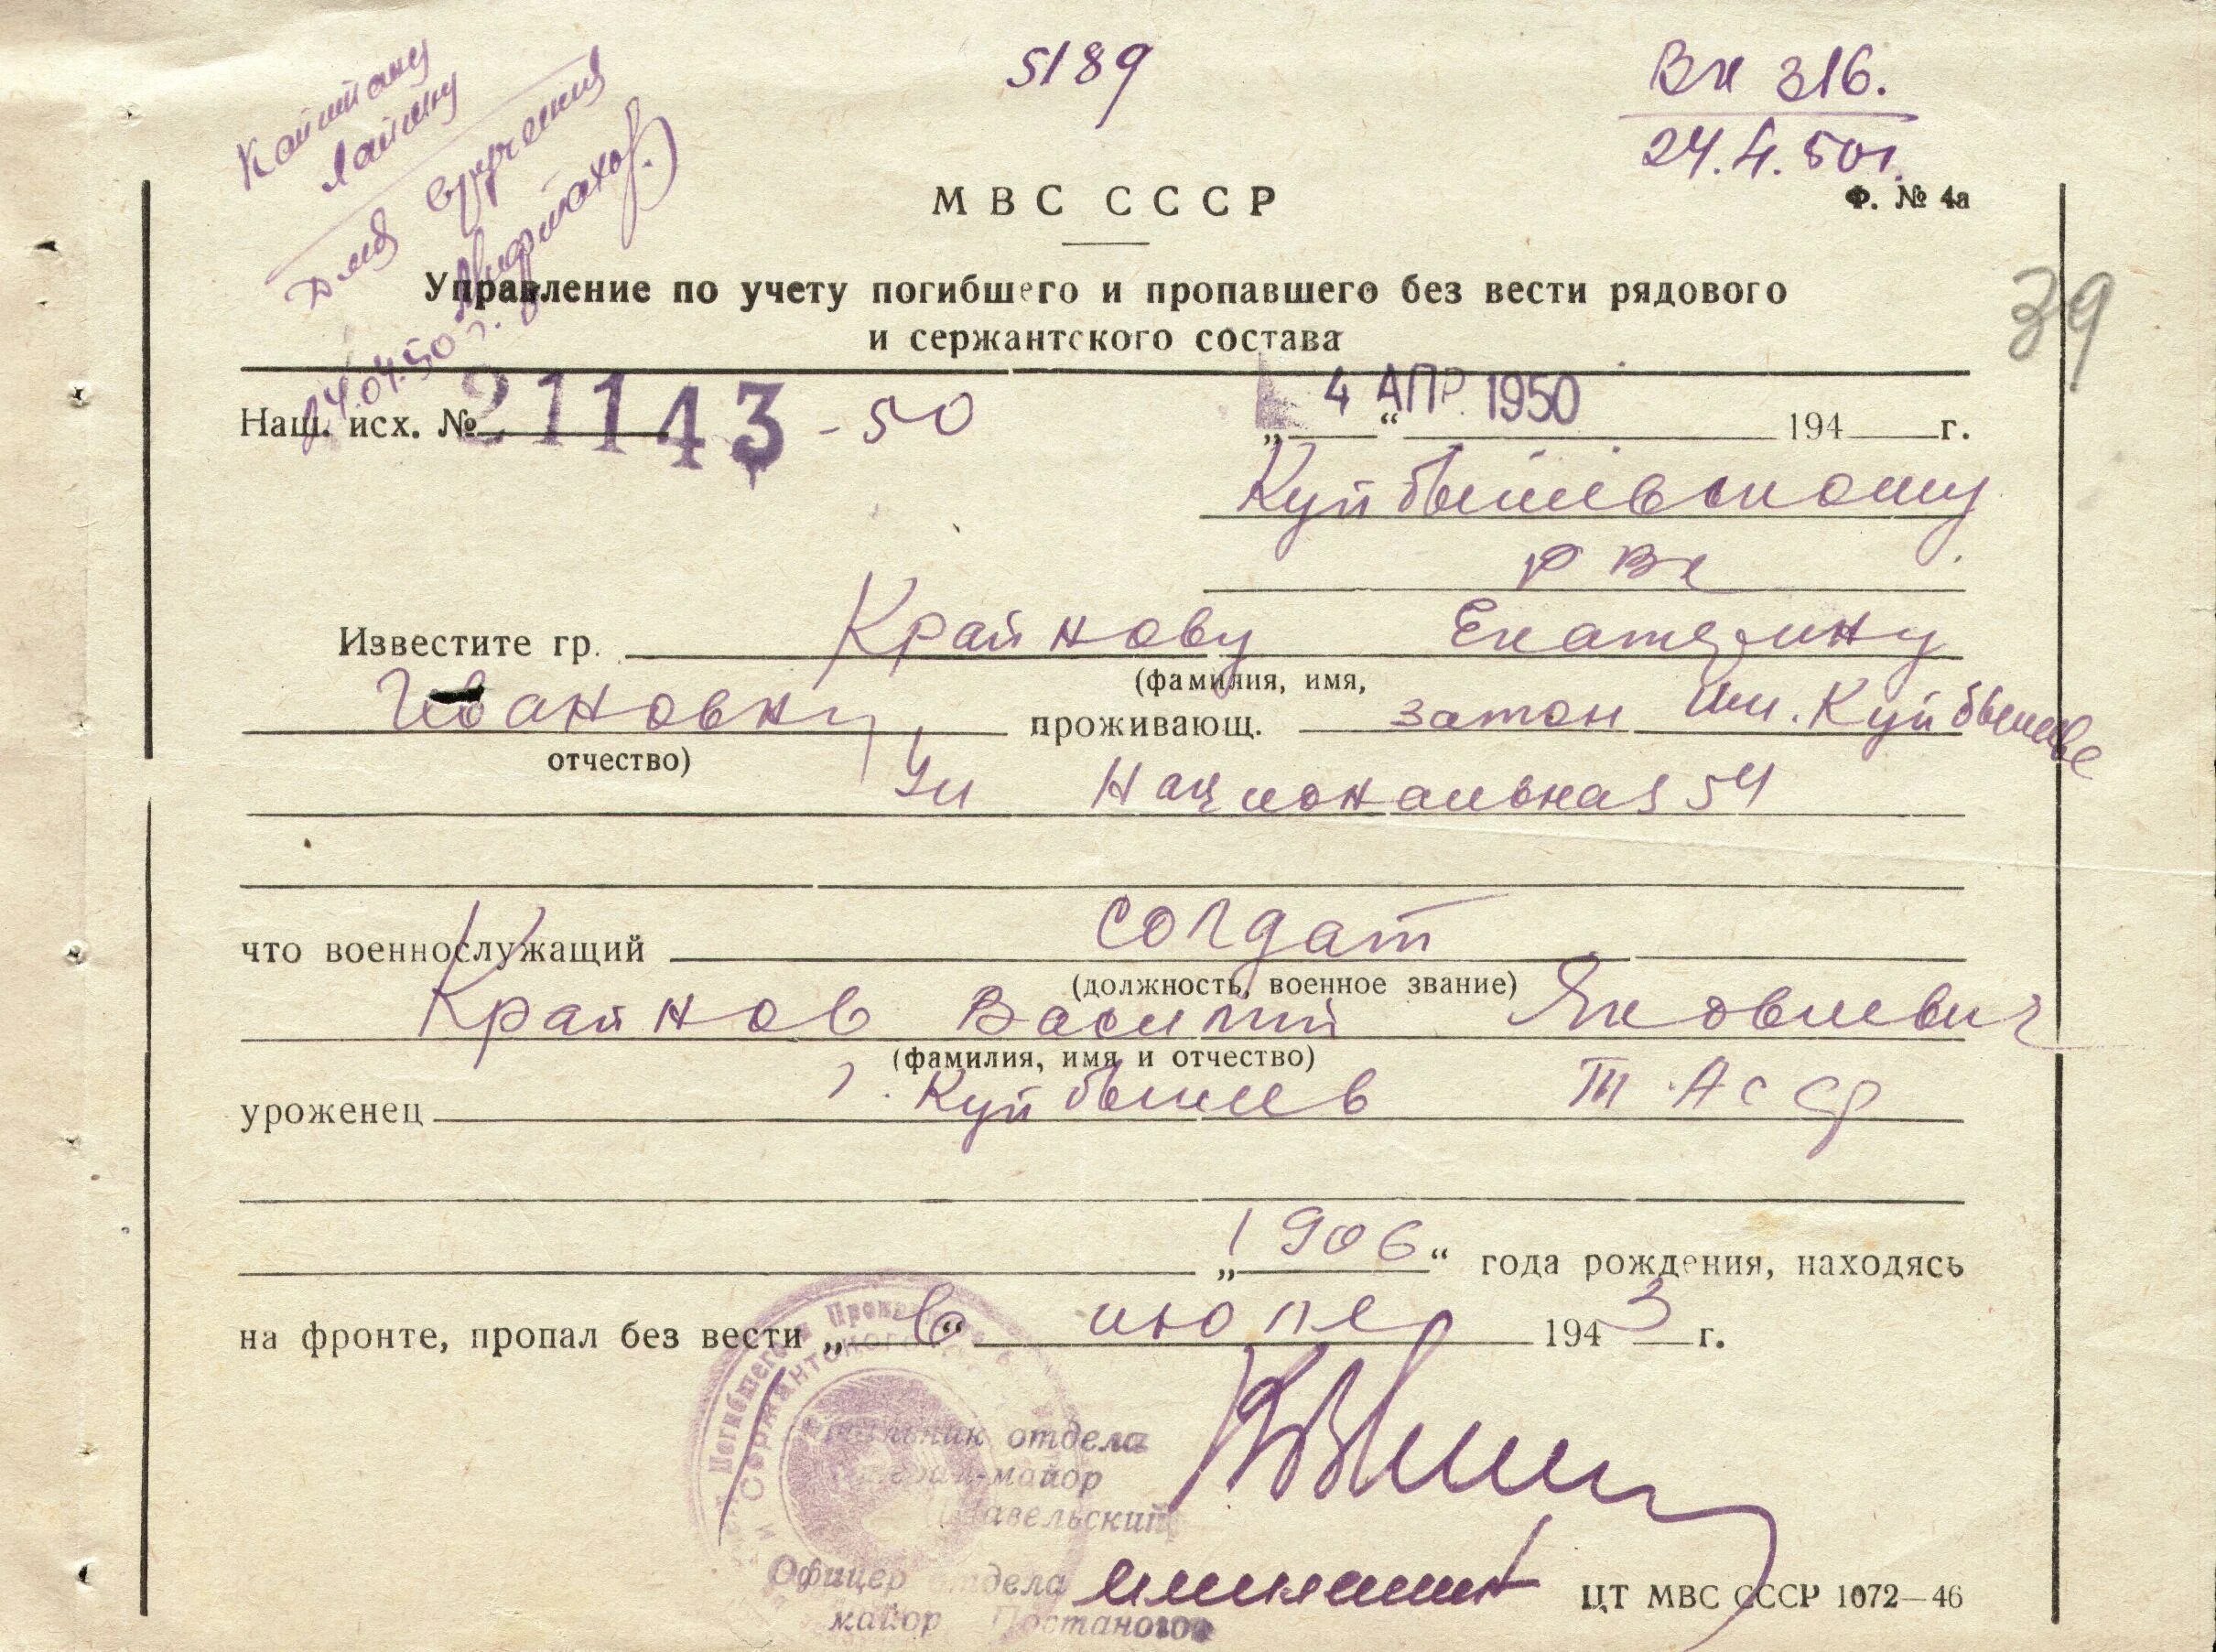 5189
Вх 316.
24.4.50г.
Капитану
Лапину
для вручения
24.04.50 г.
МВС СССР
Ф. № 4а
39
Управление по учету погибшего и пропавшего без вести рядового
и сержантского состава
Наш. исх. № 21143 - 50
„ 4 “ АПР. 1950 194 г.
Куйбышевскому
РВК
Известите гр. Крайнову Екатерину
(фамилия, имя,
Ивановну проживающ. затон им. Куйбышева
отчество)
Ул Национальная 54
что военнослужащий солдат
(должность, военное звание)
Крайнов Василий Яковлевич
(фамилия, имя и отчество)
уроженец г. Куйбышев ТАССР
„1906“ года рождения, находясь
на фронте, пропал без вести „в“ июле 1943 г.
Погибшего и
и Сержантского
Начальник отдела
генерал-майор
Шавельский
Офицер отдела
майор
ЦТ МВС СССР 1072—46